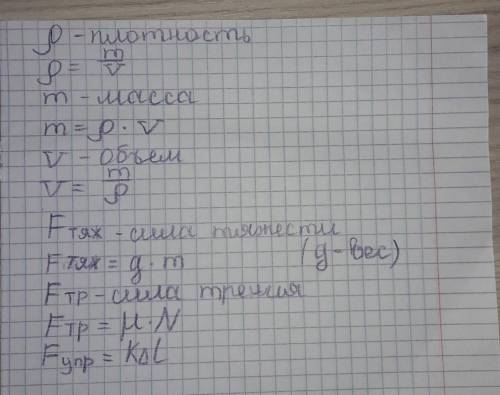 ρ - плотность
ρ = m/V
m - масса
m = ρ · V
V - объем
V = m/ρ
Fтяж - сила тяжести
Fтяж = g · m (g - вес)
Fтр - сила трения
Fтр = μ · N
Fупр = kΔl